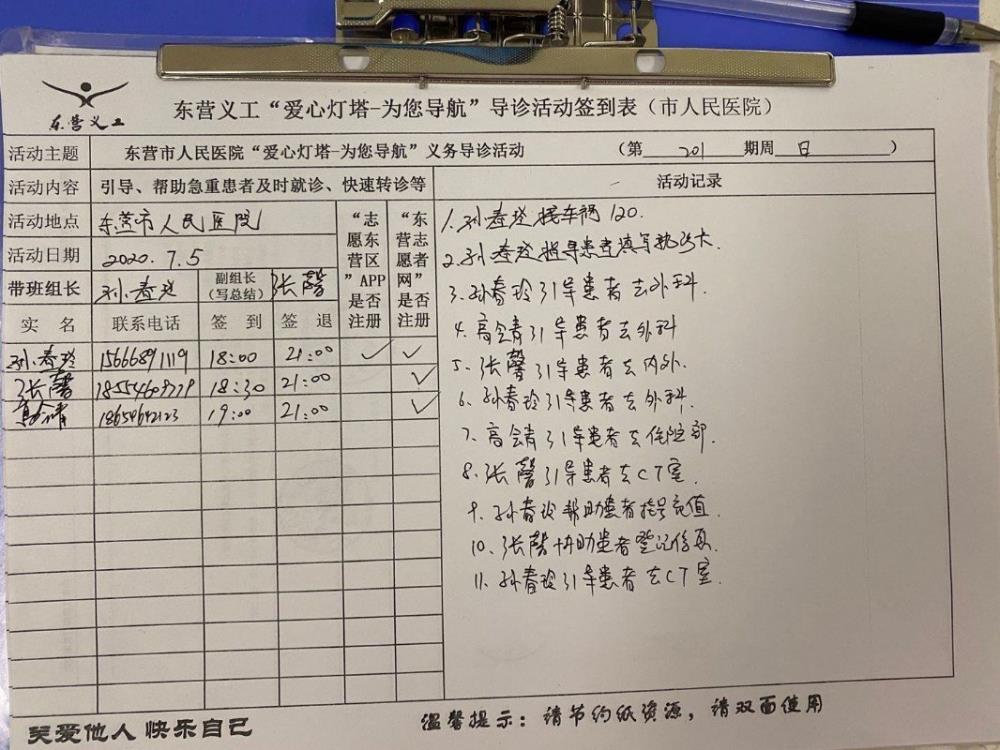 东营义工
东营义工“爱心灯塔-为您导航”导诊活动签到表（市人民医院）
活动主题 东营市人民医院“爱心灯塔-为您导航”义务导诊活动 （第 201 期周 日 ）
活动内容 引导、帮助急重患者及时就诊、快速转诊等 活动记录
活动地点 东营市人民医院
活动日期 2020.7.5
带班组长 孙春玲 副组长（写总结） 张馨
“志愿东营区”APP是否注册
“东营志愿者网”是否注册
实名 联系电话 签到 签退
孙春玲 15666891119 18:00 21:00 ✓ ✓
张馨 18:30 21:00 ✓
高会青 18654642123 19:00 21:00 ✓
1.孙春玲接车祸120.
2.孙春玲指导患者填写
3.孙春玲引导患者去外科.
4.高会青引导患者去外科
5.张馨引导患者去内外.
6.孙春玲引导患者去外科.
7.高会青引导患者去住院部.
8.张馨引导患者去CT室.
9.孙春玲帮助患者挂号充值.
10.张馨协助患者登记信息.
11.孙春玲引导患者去CT室.
关爱他人 快乐自己
温馨提示：请节约纸资源，请双面使用